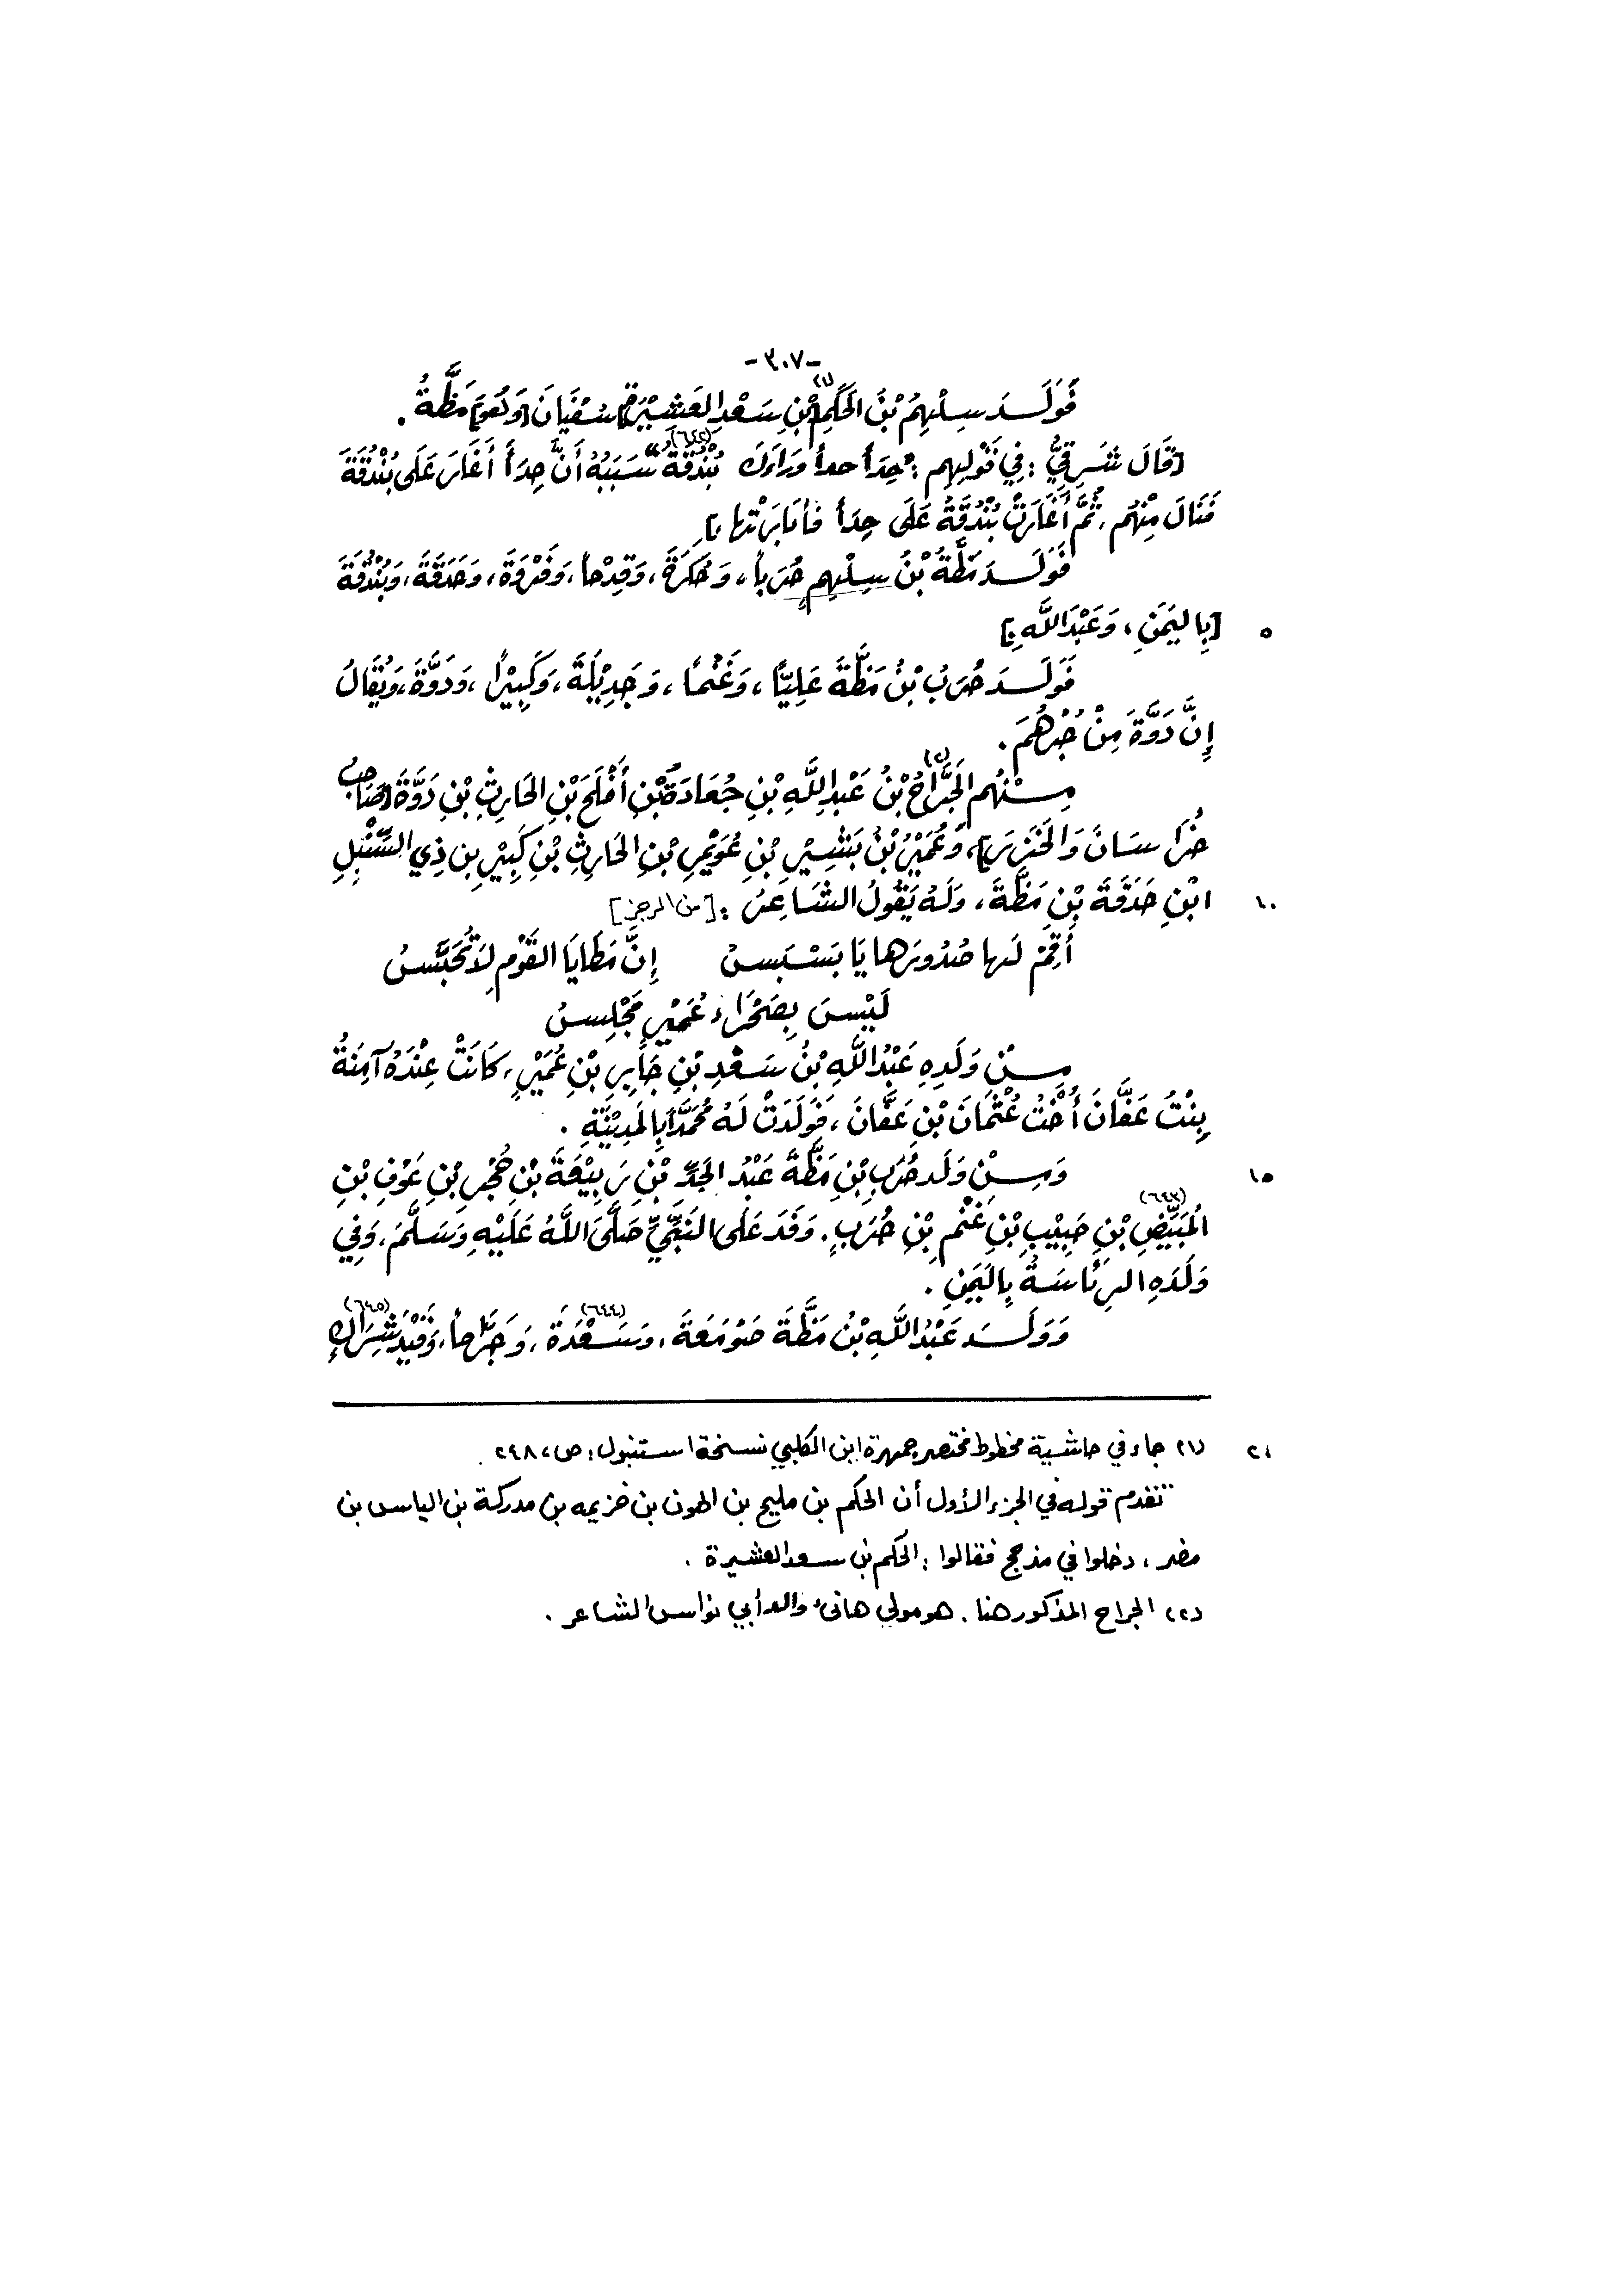 -٣٠٧-
فَوَلَـدَ سِلْهِمُ بْنُ الحَكَمِ(١) بْنِ سَعْدِ العَشِيْرَةِ سُفْيَانَ [وَهُوَ] مَظَّةُ.
[قَالَ شَرْقِيُّ: فِي قَوْلِهِم: حِدَأ حدأ وَرَاءَكَ بُنْدُقَةُ(٦٤٢) سَبَبُهُ أَنَّ حِدَأً أَغَارَ عَلَى بُنْدُقَةَ
فَنَالَ مِنْهُم، ثُمَّ أَغَارَتْ بُنْدُقَةُ عَلَى حِدَأ فأَبَارَتْها].
فَوَلَـدَ مَظَّةُ بْنُ سِلْهِمٍ حُرَباً، وَحَكَرَةَ، وَقِدْحاً، وَفَرْوَةَ، وَحَدَقَةَ، وَبُنْدُقَةَ
٥ [بِاليَمَنِ، وَعَبْدَ اللَّهِ.]
فَوَلَـدَ حُرَبُ بْنُ مَظَّةَ عَلِيّاً، وَغَنْماً، وَجَدِيْلَةَ، وَكَبِيْراً، وَدَوَّةَ، وَيُقَالُ
إِنَّ دَوَّةَ مِنْ جُرْهُمَ.
مِـنْهُم الجَرَّاحُ(٢) بْنُ عَبْدِ اللَّهِ بْنِ جُعَادَةَ بْنِ أَفْلَحَ بْنِ الحَارِثِ بْنِ دَوَّةَ [صَاحِبُ
خُرَاسَانَ وَالخَزَرِ]، وَعُمَيْرُ بْنُ بَشِيْرِ بْنِ عُوَيْمِرِ بْنِ الحَارِثِ بْنِ كَبِيْرِ بِن ذِي السَّبَلِ
١٠ ابْنِ حَدَقَةَ بْنِ مَظَّةَ، وَلَهُ يَقُولُ الشَّاعِرُ: [من الرجز]
أَقِمْ لَها صُدُورَها يَا بَسْبَسُ إِنَّ مَطَايَا القَوْمِ لَا تُحَبَّسُ
لَيْسَ بِصَحْرَاءِ عُمَيْرٍ مَجْلِسُ
مِـنْ وَلَدِهِ عَبْدُ اللَّهِ بْنُ سَعْدِ بْنِ جَابِرِ بْنِ عُمَيْرٍ، كَانَتْ عِنْدَهُ آمِنَةُ
بِنْتُ عَفَّانَ أُخْتُ عُثْمَانَ بْنِ عَفَّانَ، فَوَلَدَتْ لَهُ مُحَمَّداً بِالمَدِيْنَةِ.
١٥ وَمِـنْ وَلَدِ حُرَبِ بْنِ مَظَّةَ عَبْدُ الجَدِّ بْنِ رَبِيْعَةَ بْنِ حُجْرِ بْنِ عَوْفِ بْنِ
المُبَيِّضِ(٦٤٣) بْنِ حَبِيْبِ بْنِ غَنْمِ بْنِ حُرَبٍ. وَفَدَ عَلَى النَّبِيِّ صَلَّى اللَّهُ عَلَيْهِ وَسَلَّمَ، وَفِي
وَلَدِهِ الرِّئَاسَةُ بِاليَمَنِ.
وَوَلَـدَ عَبْدُ اللَّهِ بْنُ مَظَّةَ صَوْمَعَةَ، وَسَعْدَةَ(٦٤٤)، وَجَرَّاحاً، وَقَيْدَ شِرَاكٍ(٦٤٥)
٢٠ (١) جاء في حاشية مخطوط مختصر جمهرة ابن الكلبي نسخة استنبول: ص، ٢٤٨.
تقدم قوله في الجزء الأول أن الحكم بن مليح بن الهون بن خزيمه بن مدركة بن الياس بن
مضر، دخلوا في مذحج فقالوا: الحكم بن سعد العشيرة.
(٢) الجراح المذكور هنا. هو مولى هانئ والد أبي نواس الشاعر.